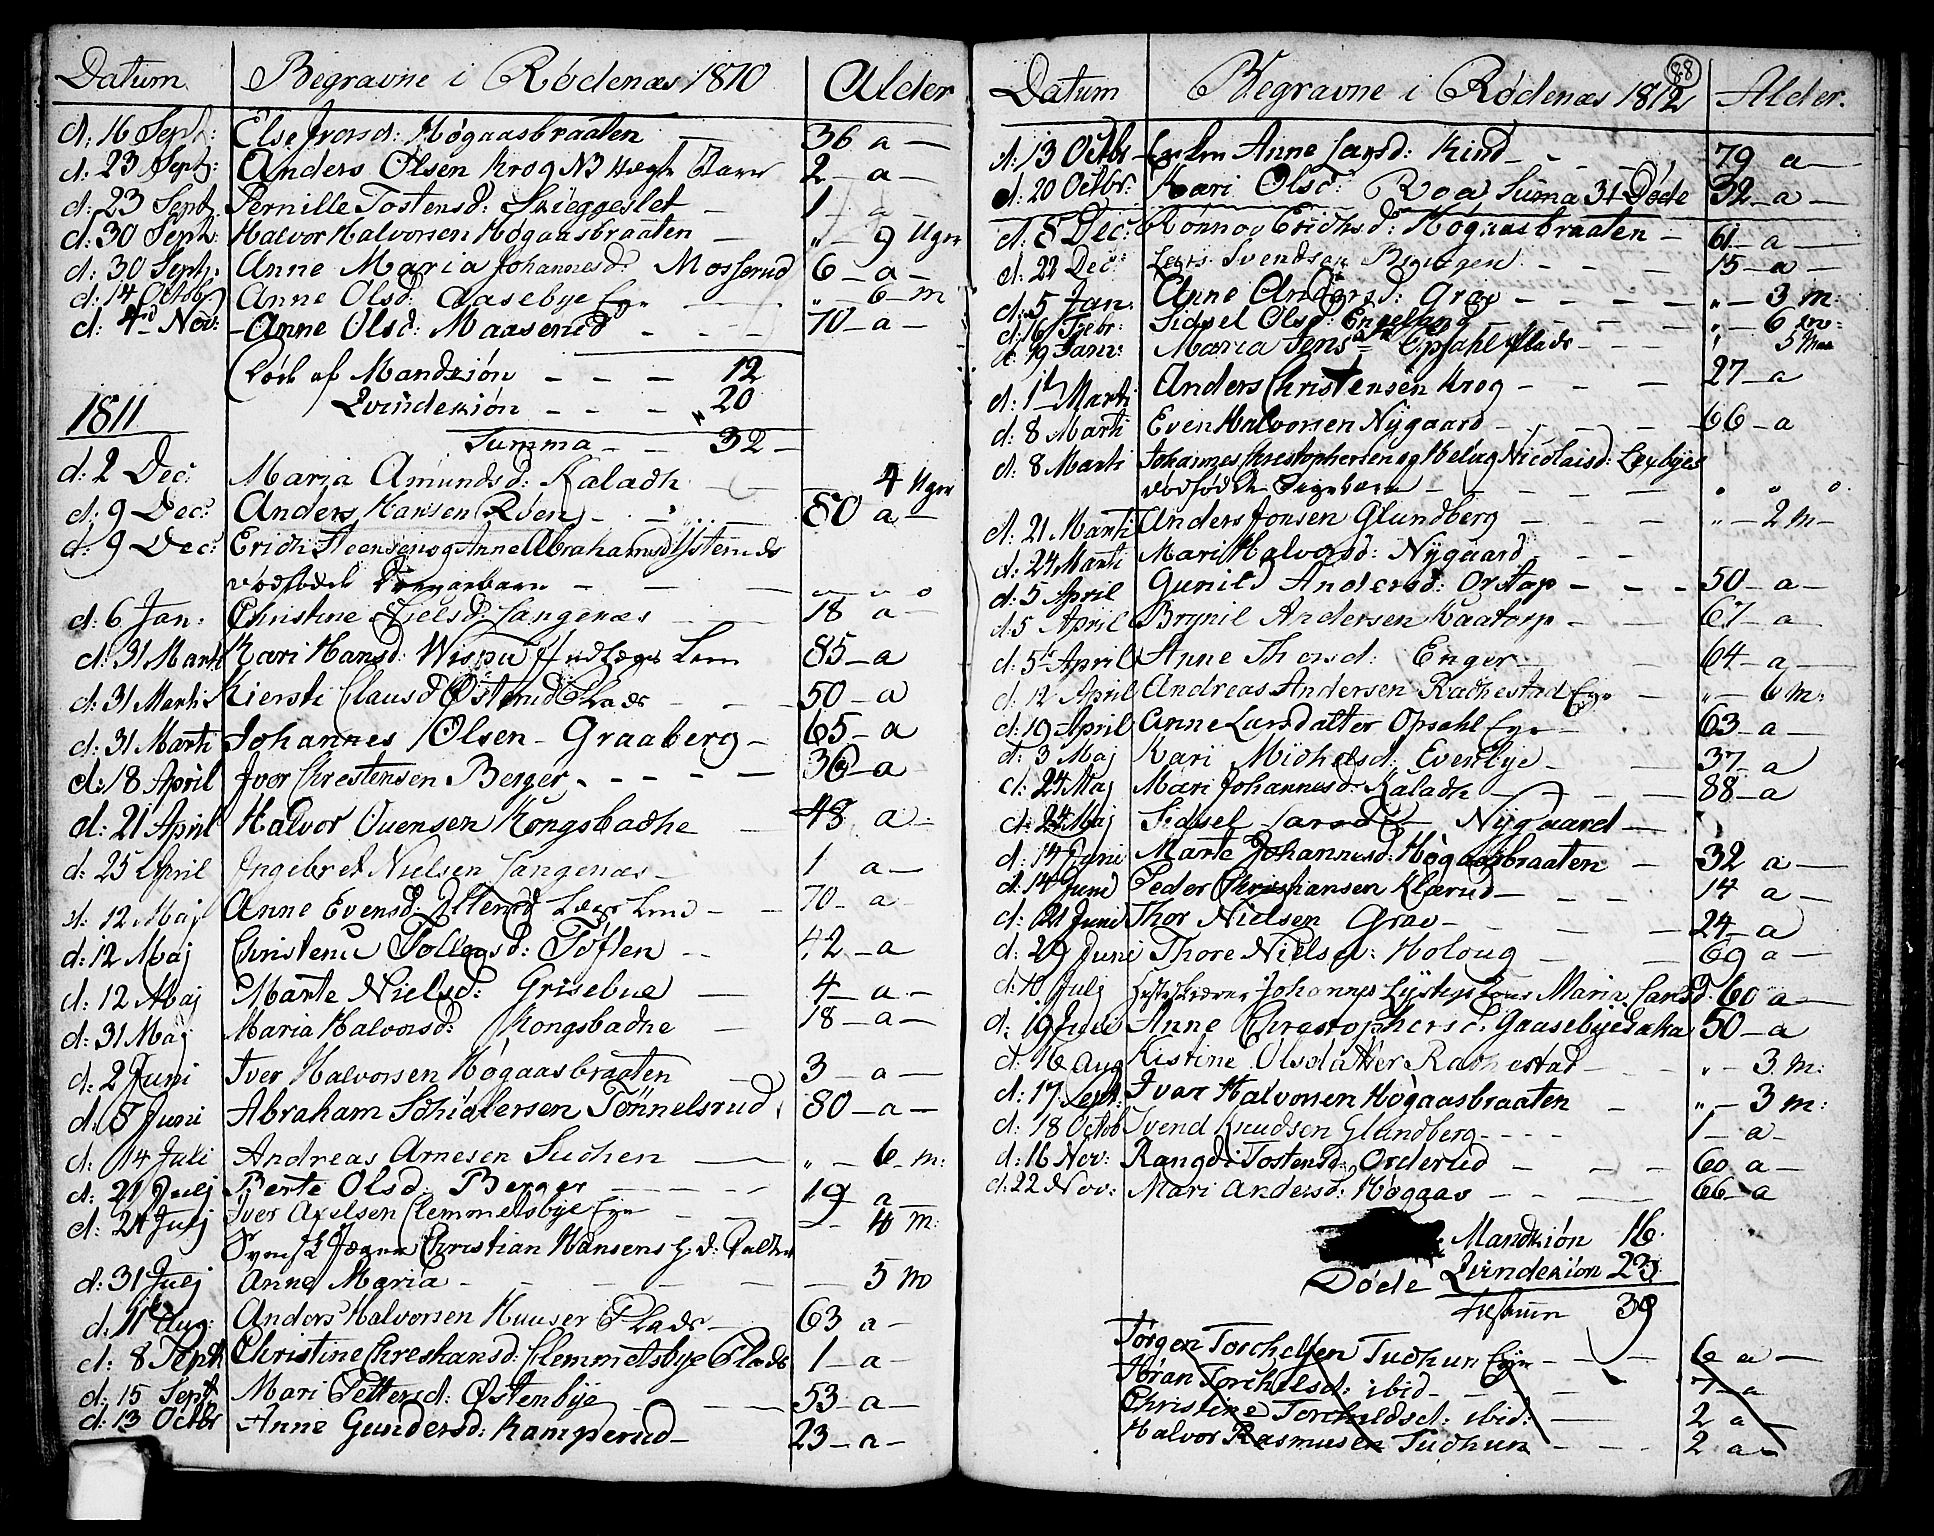 Datum Begravne i Rødenæs 1810 Alder
d: 16 Sept: Else Jversd: Høgaasbraaten 36 a
d: 23 Sept: Anders Olsen Krog 2 a
d: 23 Sept: Pernille Tostensd: Skieggeslet 1 a
d: 30 Sept: Halvor Halvorsen Høgaasbraaten " 9 Uger
d: 30 Sept: Anne Maria Johannesd: Mosserud 6 a
d: 14 Octob Anne Olsd: Aasebye Eye " 6 m
d: 4d Nov: Anne Olsd: Maaserud 70 a
Død af Mandkiön 12
Qvindekiön 20
Summa 32
1811
d: 2 Dec: Maria Amundsd: Kaladh 4 Uger
d: 9 Dec: Anders Hansen Röen 80 a
d: 9 Dec: Erich Steensen og Anne Abrahamsd: Ysteruds
dödfödde Drengebarn " " o
d: 6 Jan: Christine Nielsd: Langenæs 18 a
d: 31 Marti Kari Hansd: Wispu Jndlægs Lem 85 a
d: 31 Marti Kiersti Clausd Østerud Plads 50 a
d: 31 Marti Johannes Olsen Graaberg 65 a
d: 18 April Jver Chrestensen Berger 36 a
d: 21 April Halvor Ouensen Kongsbadhe 48 a
d: 25 April Jngebret Nielsen Langenæs 1 a
d: 12 Maj Anne Evensd: Ysterud Lægs Lem 70 a
d: 12 Maj Christence Tollefsd: Töften 42 a
d: 12 Maj Marte Nielsd: Grisebue 4 a
d: 31 Maj Maria Halvorsd: Kongsbadhe 18 a
d: 2 Juni Iver Halvorsen Høgaasbraaten 3 a
d: 8 Juni Abraham Schiølersen Tönnelsrud 80 a
d: 14 Juli Andreas Arnesen Sudhen " 6 m:
d: 21 Julj Berte Olsd: Berger 19 a
d: 24 Julj Iver Axelsen Clemmetsbye Eye 4 m:
Svensk Jæger Christian Hansens
d: 31 Julj Anne Maria 5 m
d: 11t Aug: Anders Halvorsen Huuser Plads 63 a
d: 8 Sept Christine Chrestiansd: Clemmetsbye Plads 1 a
d: 15 Sept Mari Pettersd: Østenbye 53 a
d: 13 Octbr Anne Gundersd: Kamperud 23 a
88
Datum Begravne i Rødenæs 1812 Alder.
d: 13 Octbr Enken Anne Larsd: Kind 79 a
d: 20 Octbr: Kari Olsd: Roa Suma 31 Døde 32 a
d: 8 Dec: Rønnov Erichsd: Høgaasbraaten 61 a
d: 22 Dec: Lars Svendsen 15 a
d: 5 Jan: Anne Andersd: Grav " 3 m:
d: 16 Febr: Sidsel Olsd: Engelberg " 6 m:
d: 19 Janu: Maria Jensd Opsahl Plads 5 m
d: 1t Marti Anders Christensen Krog 27 a
d: 8 Marti Even Halvorsen Nÿgaard 66 a
d: 8 Marti Johannes Chrestophersen og Helvig Nicolaisd: Lexbyes
dödfödde Pigebarn " " o
d: 21 Marti Anders Jonsen Glundberg " 2 m
d: 24 Marti Mari Halvorsd: Nÿgaard
d: 5 April Gunild Andersd: Ortop 50 a
d: 5 April Brynil Andersen Kaatorp 67 a
d: 5t April Anne Thorsd: Enger 64 a
d: 12 April Andreas Andersen Radhestad Eye " 6 m:
d: 19 April Anne Larsdatter Opsahl Eye 63 a
d: 3 Maj Kari Michelsd: Evenbye 37 a
d: 24 Maj Mari Johannesd: Kaladh 88 a
d: 24 Maj Sidsel Larsd Nÿgaard
d: 14 Juni Marte Johannesd: Høgaasbraaten 32 a
d: 14 Juni Peder Christiansen Klærud 14 a
d: 21 Juni Thor Nielsen Grav 24 a
d: 29 Juni Thore Nielsd: Holoug 69 a
d: 10 Julj Johannes Maria Larsd: 60 a
d: 19 Juli Anne Chrestophersd: Gaasebye 50 a
d: 16 Aug Kistine Olsdatter Radhestad " 3 m:
d: 17 Sept: Iver Halvorsen Høgaasbraaten " 3 m:
d: 18 Octob Svend Knudsen Glundberg 1 a
d: 16 Nov: Rangdi Tostensd: Orderud 60 a
d: 22 Nov: Mari Andersd: Høgaas 66 a
Mandkiön 16
Døde Qvindekiön 23
Tilsamen 39
Törgen Torchelsen Tudhun Eye 6 a
Jöran Torchelsd: ibid 7 a
Christine Torchildsd: ibid: 2 a
Halvor Rasmusen Tudhun 2 a